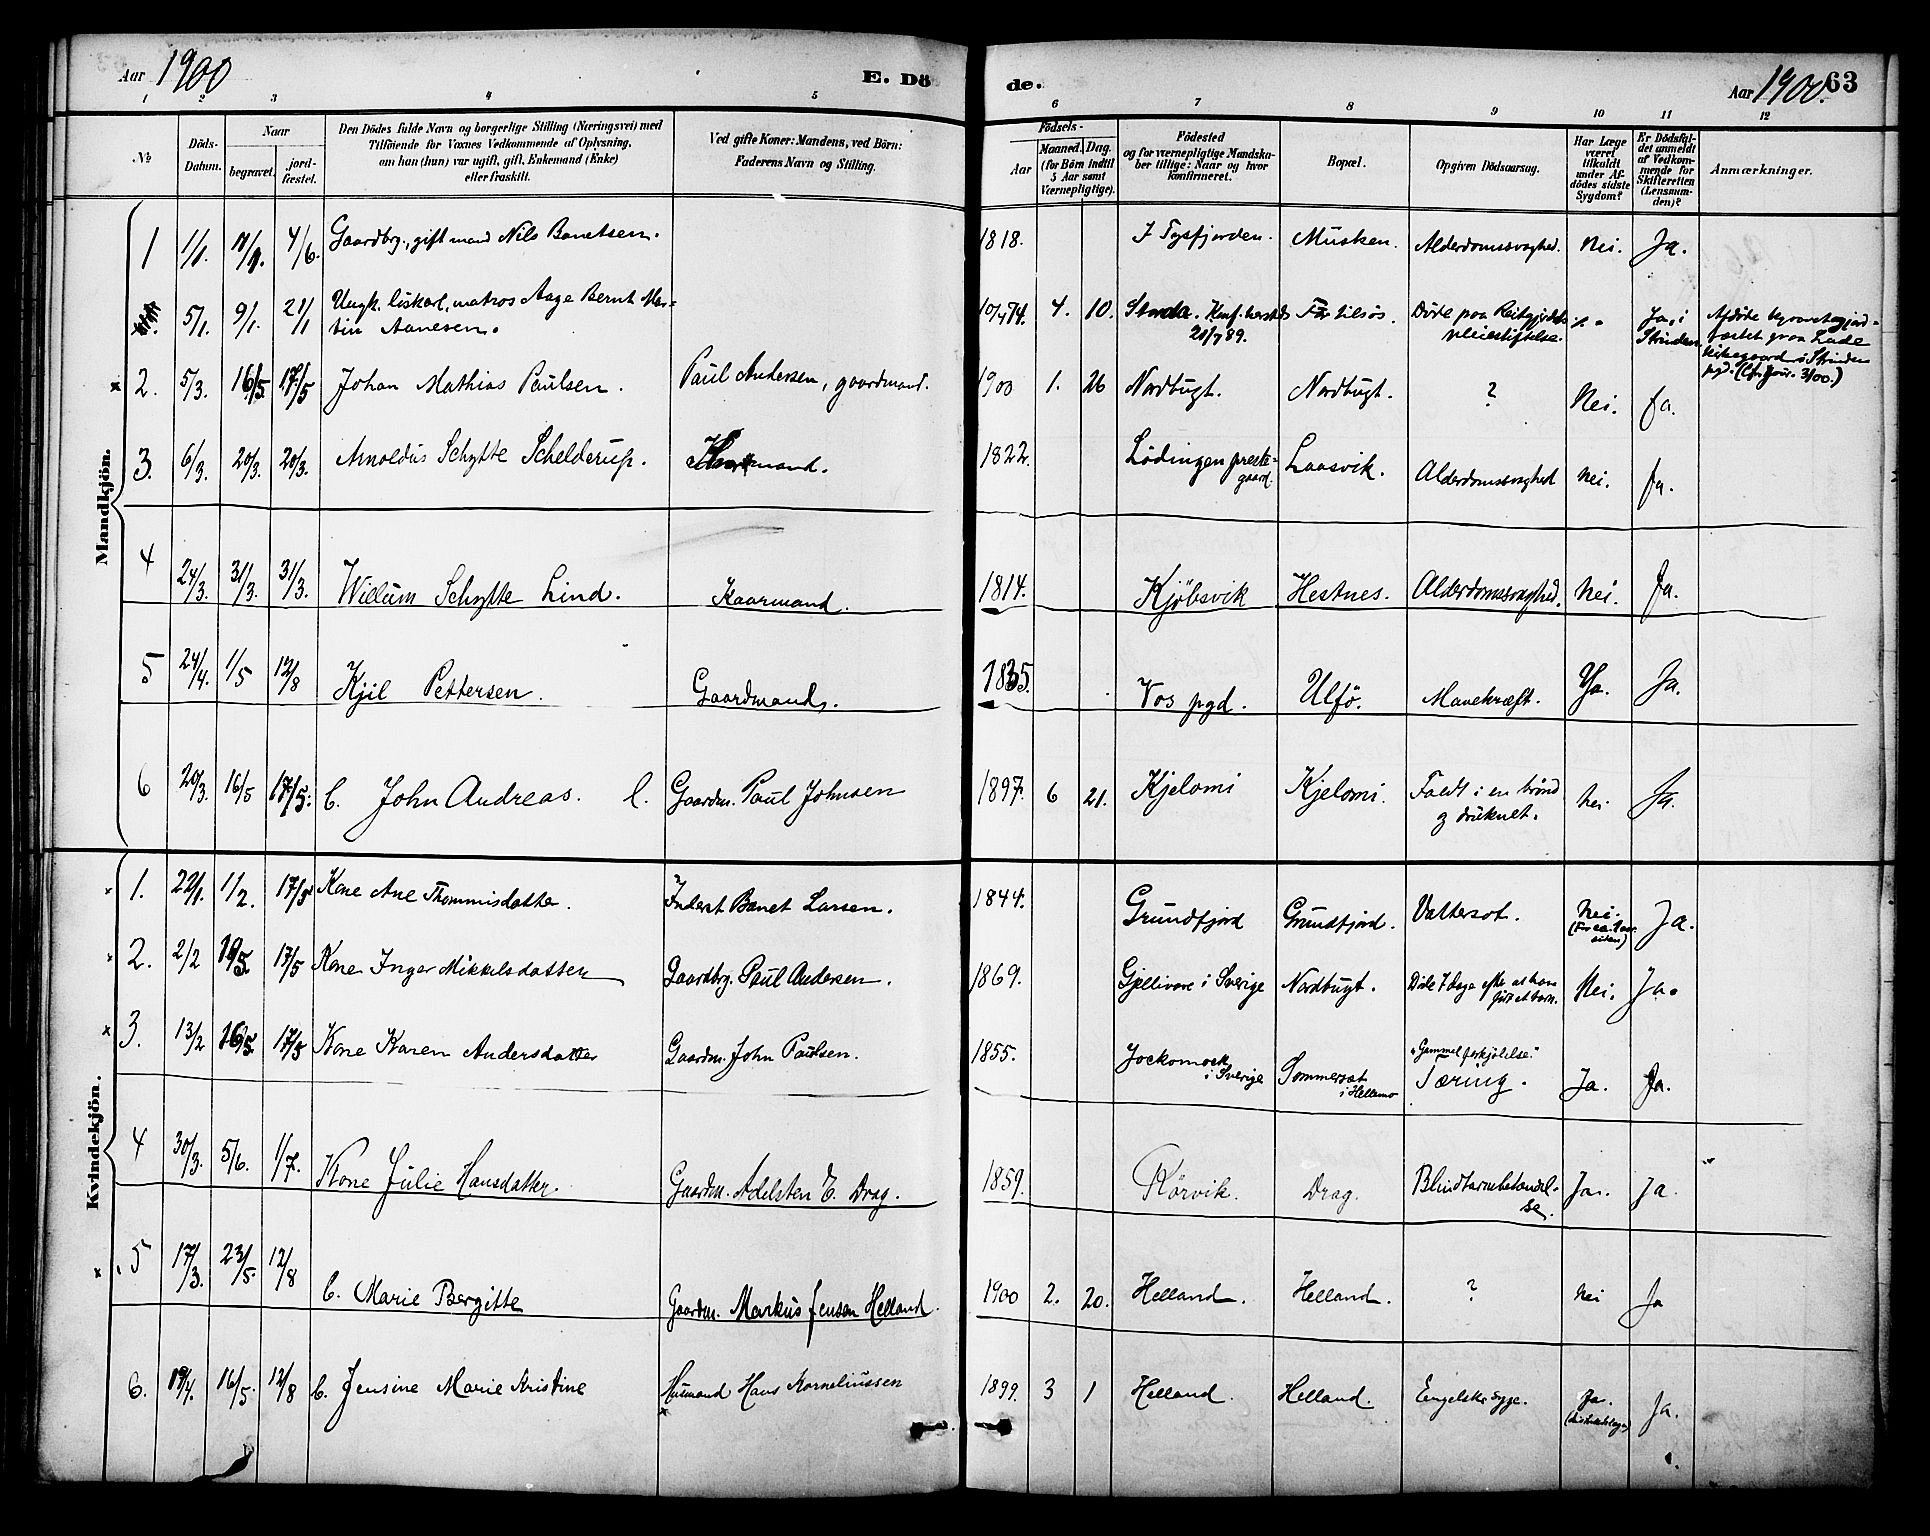 Aar 1900 E. Dö de. Aar 1900. 63
1 2 3 4 5 6 7 8 9 10 11 12
No.
Döds-
Datum.
Naar
begravet.
jord-
fæstet.
Den Dödes fulde Navn og borgerlige Stilling (Næringsvei) med
Tilföiende for Voxnes Vedkommende af Oplysning,
om han (hun) var ugift, gift, Enkemand (Enke)
eller fraskilt.
Ved gifte Koner: Mandens, ved Börn:
Faderens Navn og Stilling.
Födsels-
Aar
Maaned. Dag.
(for Börn indtil
5 Aar samt
Værnepligtige).
Födested
og for værnepligtige Mandska-
ber tillige: Naar og hvor
konfirmeret.
Bopæl.
Opgiven Dödsaarsag.
Har Læge
været
tilkaldt
under Af-
dödes sidste
Sygdom?
Er Dödsfal-
det anmeldt
af Vedkom-
mende for
Skifteretten
(Lensman-
den)?
Anmærkninger.
Mandkjön.
1 1/1. 11/1. 4/6. Gaardbrg., gift mand Nils Banetsen. 1818. I Tysfjorden. Musken. Alderdomssvaghed. Nei. Ja.
5/1. 9/1. 21/1 Ungk. fiskarl, matros Aage Bernt Mar-
tin Aanesen. 10/4 74. 4. 10. Konf. 21/7 89. Döde paa Reitgjerdets
pleiestiftelse. Ja, i
Strinden.
Afdöde begravet og jord-
fæstet paa Lade
kirkegaard i Strinden
pgd. (Cfr. Jour. 3/00.)
x 2. 5/3. 16/5. 17/5 Johan Mathias Paulsen. Paul Andersen, gaardmand. 1900 1. 26 Nordbugt. Nordbugt. ? Nei. Ja.
3. 6/3. 20/3. 20/3. Arnoldus Schytte Schelderup. 1822. Lödingen preste-
gaard. Laasvik. Alderdomssvaghed Nei. Ja.
4 24/3. 31/3. 31/3. Wielum Schytte Lind. Kaarmand. 1814. Kjöbsvik Hestnes. Alderdomssvaghed. Nei. Ja.
5 24/4. 1/5 12/8 Kjil Pettersen. Gaardmand. 1835. Vos pgd. Ulfö. Mavekræft. Ja. Ja.
6 20/3. 16/5 17/5. b. John Andreas. l. Gaardm. Paul Johnsen 1897. 6 21. Kjelomi Kjelomi. Faldt i en brönd
og druknet. Nei Ja.
Kvindekjön.
x 1. 22/1. 1/2. 17/5 Kone Ane Thommisdatter. Inderst Banet Larsen. 1844. Grundfjord Grundfjord. Vattersot. Nei. Ja.
x 2. 2/2 17/5 Kone Inger Mikkelsdatter Gaardbrg. Paul Andersen. 1869. Gjellivare i Sverige Nordbugt. Död 7 dage efter at have
född et barn. Nei. Ja.
x 3. 13/2 16/5. 17/5 Kone Karen Andersdatter Gaardm. John Paulsen. 1855. Jockomock
i Sverige Sommerset
i Hellemo "Gammel forkjölelse."
Tæring. Ja. Ja.
4 30/3. 5/6. 1/7. Kone Julie Hansdatter. Gaardm. Adelsten E. Drag. 1859. Körvik. Drag. Blindtarmbetændel-
se. Ja. Ja.
x 5 17/3. 23/5. 12/8 b. Marie Bergitte Gaardm. Markus Jensen Helland. 1900 2. 20. Helland. Helland. ? Nei Ja
6. 19/4. 16/5. 12/8 b. Jensine Marie Kristine Husmand Hans Korneliussen 1899. 3 1 Helland. Helland. Engelsk syge. Ja. Ja.
x